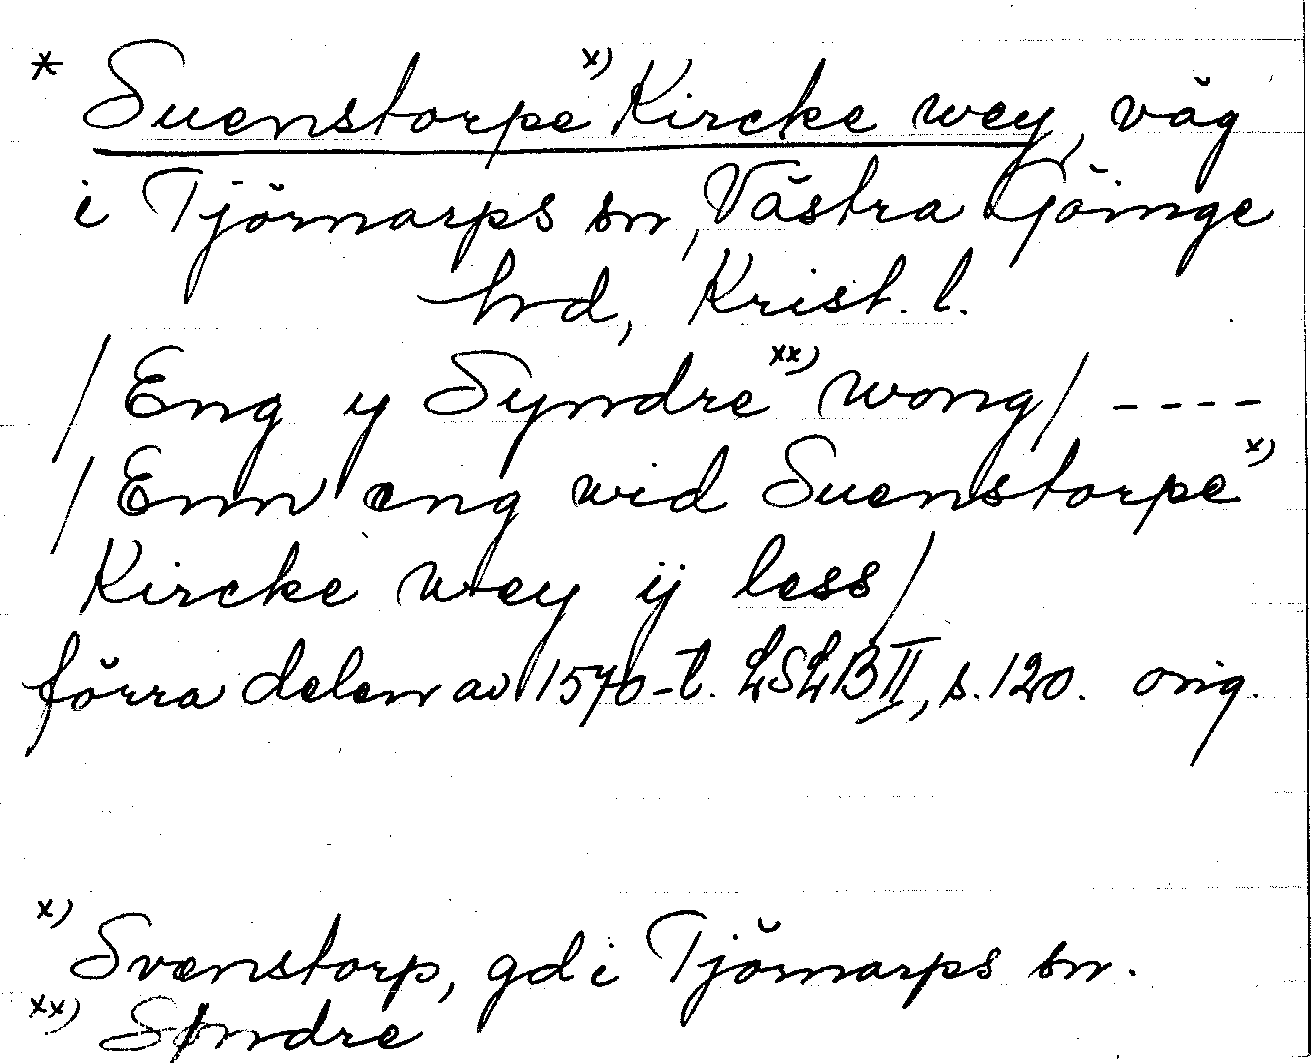 * Suenstorpe x) Kircke wey, väg
i Tjörnarps sn, Västra Göinge
hrd, Krist. l.
/Eng y Syndre xx) wong/ ----
/Enn eng wid Suenstorpe x)
Kircke wey ij less/
förra delen av 1570-t. LSLB II, s. 120. orig.
x) Svenstorp, gd i Tjörnarps sn.
xx) Søndre